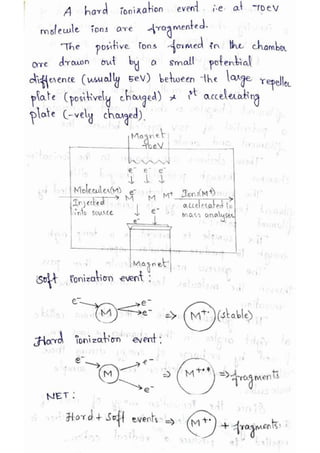 A hard ionization event i.e at ~70eV
molecule ions are fragmented.
The positive ions formed in the chamber
are drawn out by a small potential
difference (usually 5eV) between the large repeller
plate (positively charged) & 1st accelerating
plate (-vely charged).
Magnet
70eV
e- e- e-
Molecules(M) Ions(M+)
Injected accelerated to
into source mass analyser
e- M M M+
e-
e-
Magnet
Soft ionization event :
e- M e- e- => M+. (stable)
Hard ionization event :
e- M e- e- => M+.* => fragments
NET :
Hard + Soft events => M+. + fragments.